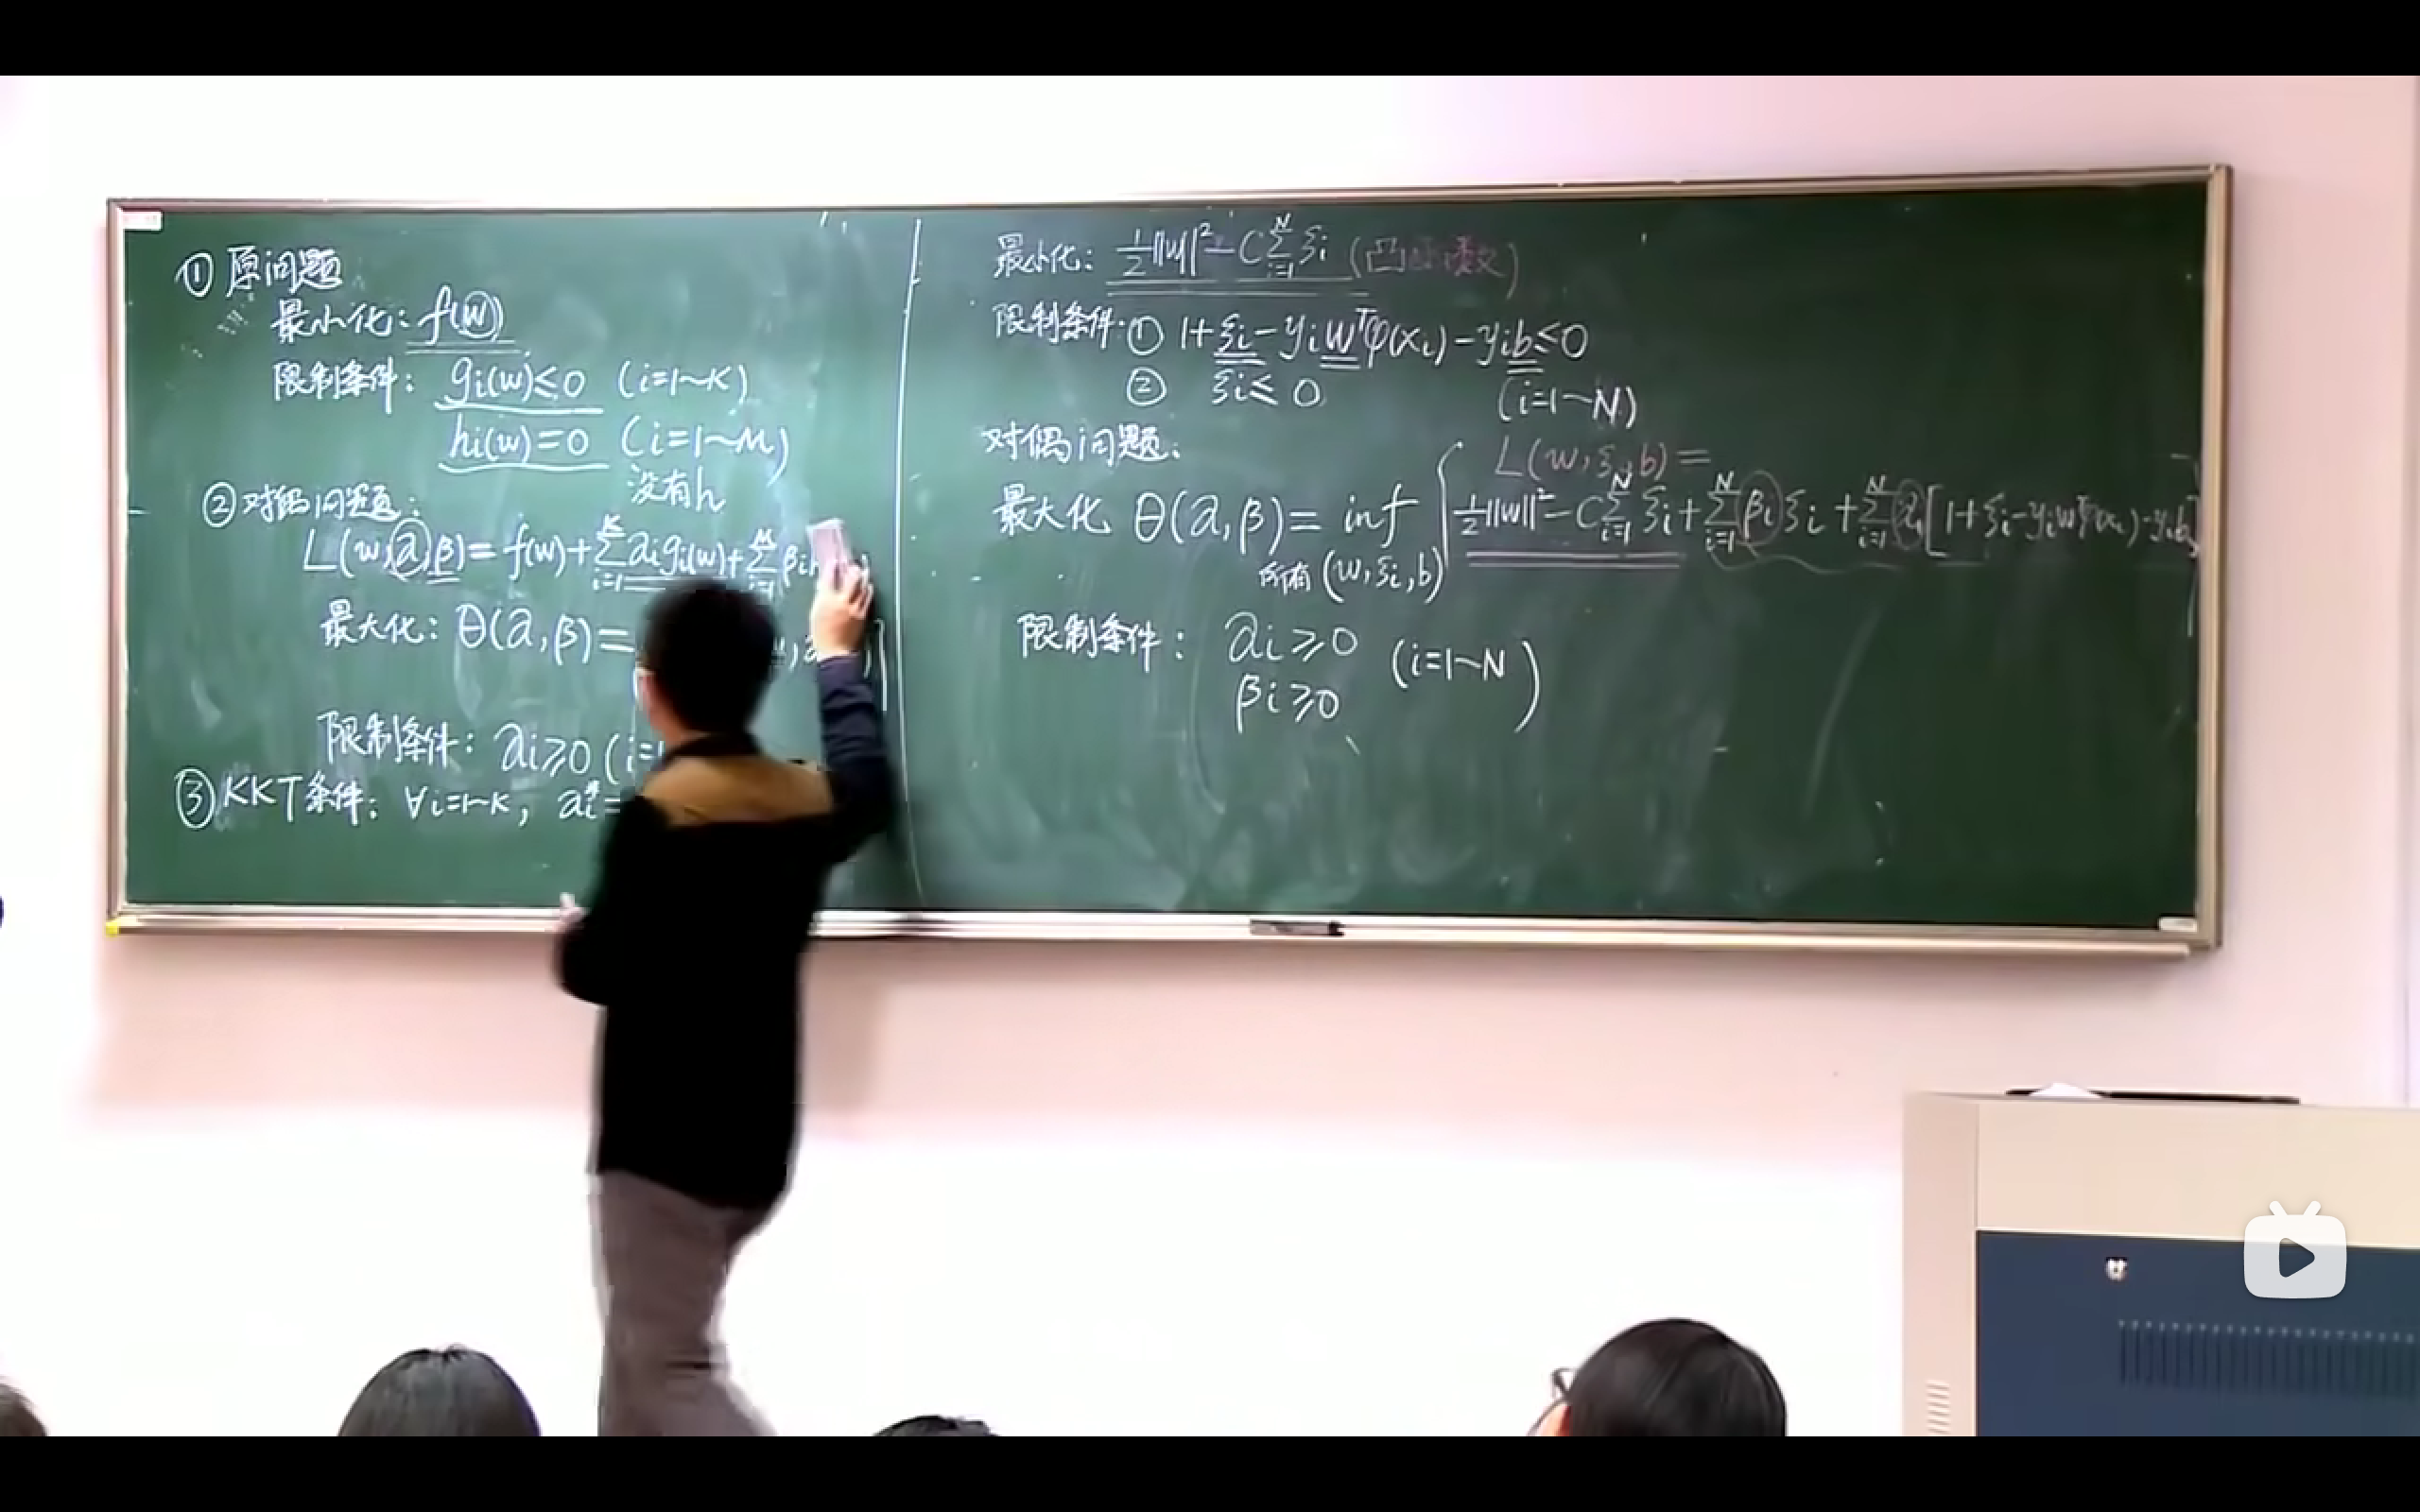 ① 原问题
最小化: f(w)
限制条件: gi(w)≤0 (i=1~K)
hi(w)=0 (i=1~M)
没有h
② 对偶问题:
L(w,α,β)= f(w)+∑_{i=1}^{K} αi gi(w)+∑_{i=1}^{M} βi
最大化: θ(α,β)=
限制条件: αi≥0 (i=1
③ KKT条件: ∀i=1~K, αi*=
最小化: 1/2||w||²-C∑_{i=1}^{N} ξi (凸函数)
限制条件: ① 1+ξi-yiwᵀφ(xi)-yib≤0
② ξi≤0 (i=1~N)
对偶问题:
L(w,ξi,b)=
最大化 θ(α,β)= inf { 1/2||w||²-C∑_{i=1}^{N} ξi+∑_{i=1}^{N} βiξi+∑_{i=1}^{N} αi[1+ξi-yiwᵀφ(xi)-yib]
所有(w,ξi,b)
限制条件: αi≥0 (i=1~N)
βi≥0